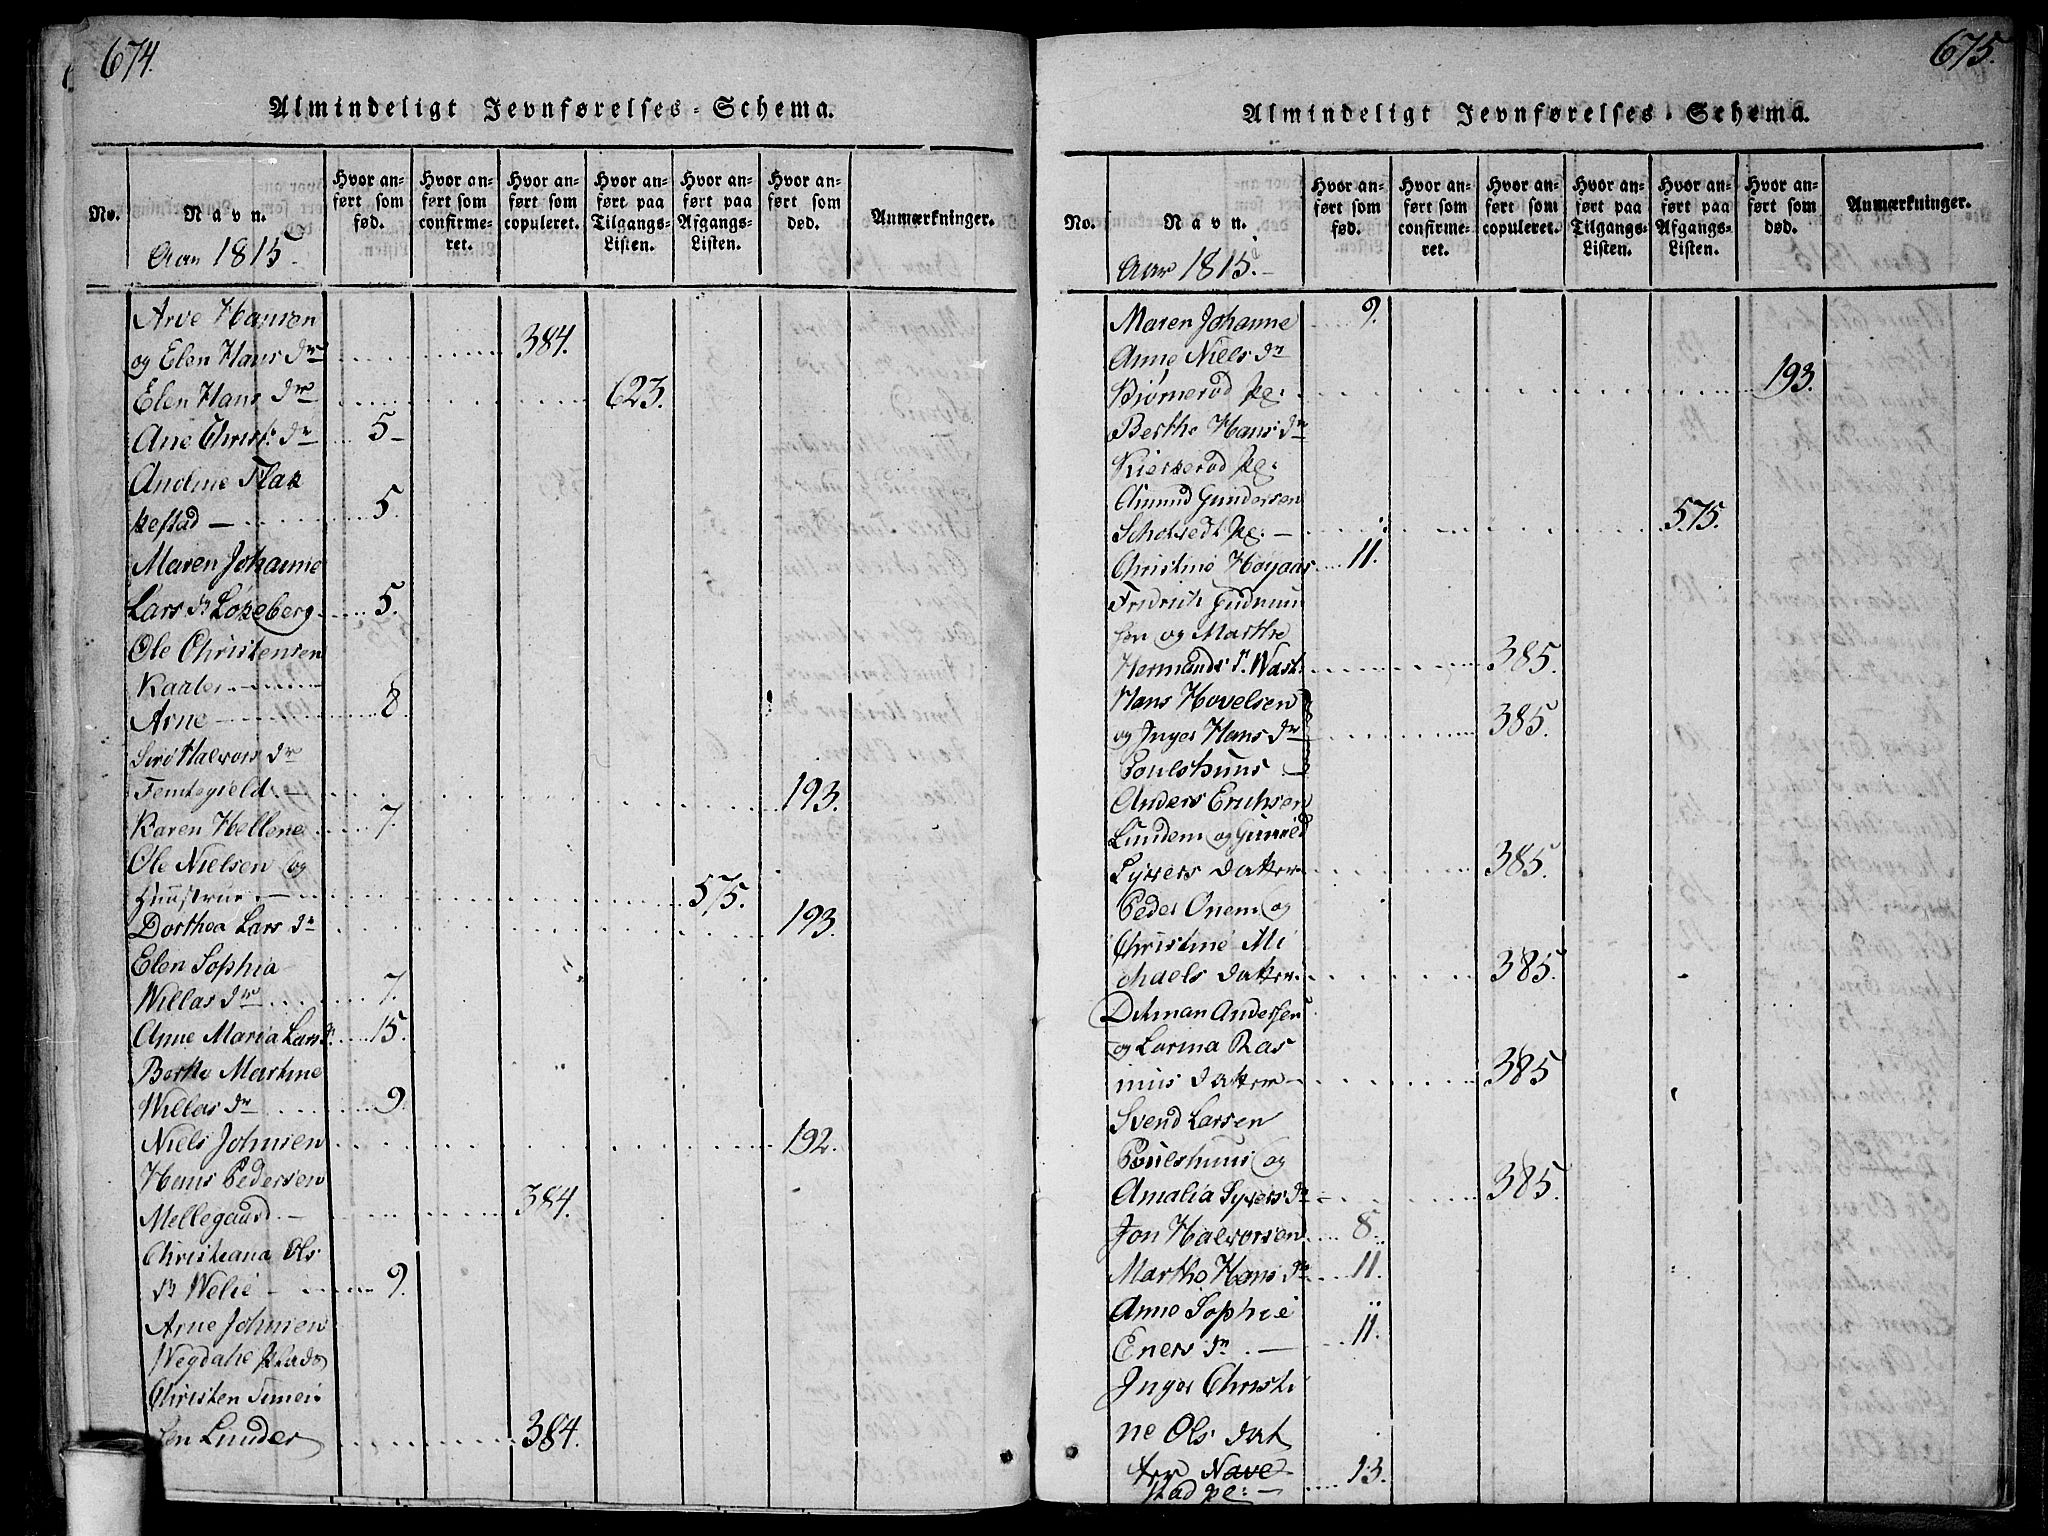 674.
Almindeligt Jevnførelses-Schema.
No.
Navn.
Hvor an-
ført som
fød.
Hvor an-
ført som
confirme-
ret.
Hvor an-
ført som
copuleret.
Hvor an-
ført paa
Tilgangs-
Listen.
Hvor an-
ført paa
Afgangs-
Listen.
Hvor an-
ført som
død.
Anmærkninger.
Aar 1815.
Arve Hansen
og Elen Hans dr 384.
Elen Hans dr 623.
Ane Christ: dr 5
Andine Flak
kestad 5.
Maren Johanne
Lars dr Løkeberg 5.
Ole Christensen
Kaaler
Arne 8.
Siri Halvors dr
Femtegield 193.
Karen Hellene 7.
Ole Nielsen og
Huustrue 575.
Dorthea Lars dr 193.
Elen Sophia
Willas dr 7.
Anne Maria Lars dr 15.
Berthe Martine
Willas dr 9.
Niels Johnsen 192.
Hans Pedersen
Mellegaard 384.
Christiana Ols
dr Welie 9.
Arne Johnsen
Wegdahl
Christen Simen
sen Lunder 384.
675.
Almindeligt Jevnførelses-Schema.
No.
Navn.
Hvor an-
ført som
fød.
Hvor an-
ført som
confirme-
ret.
Hvor an-
ført som
copuleret.
Hvor an-
ført paa
Tilgangs-
Listen.
Hvor an-
ført paa
Afgangs-
Listen.
Hvor an-
ført som
død.
Anmærkninger.
Aar 1815.
Maren Johanne 9.
Anne Niels dr
Biørnerød pl: 193.
Berthe Hans dr
Kierserød pl:
Amund Gundersen
pl: 575.
Christine Høyaas 11.
Fridrich Gudmun
sen og Marthe
Hermands d. 385.
Hans Hovelsen
og Inger Hans dr 385.
Poulshuus
Anders Erichsen
Lundem og Gunild
Syvers datter 385.
Peder Onem og
Christine Mi
chaels datter 385.
Ditman Andersen
og Larina Ras
mus datter 385
Svend Larsen
Poulshuus og
Amalia Syvers dr 385.
Jon Halvorsen 8.
Marthe Hans dr 11.
Anne Sophie
Eners dr 11.
Inger Christi
ne Ols dat
ter Nave
stad pl: 13.